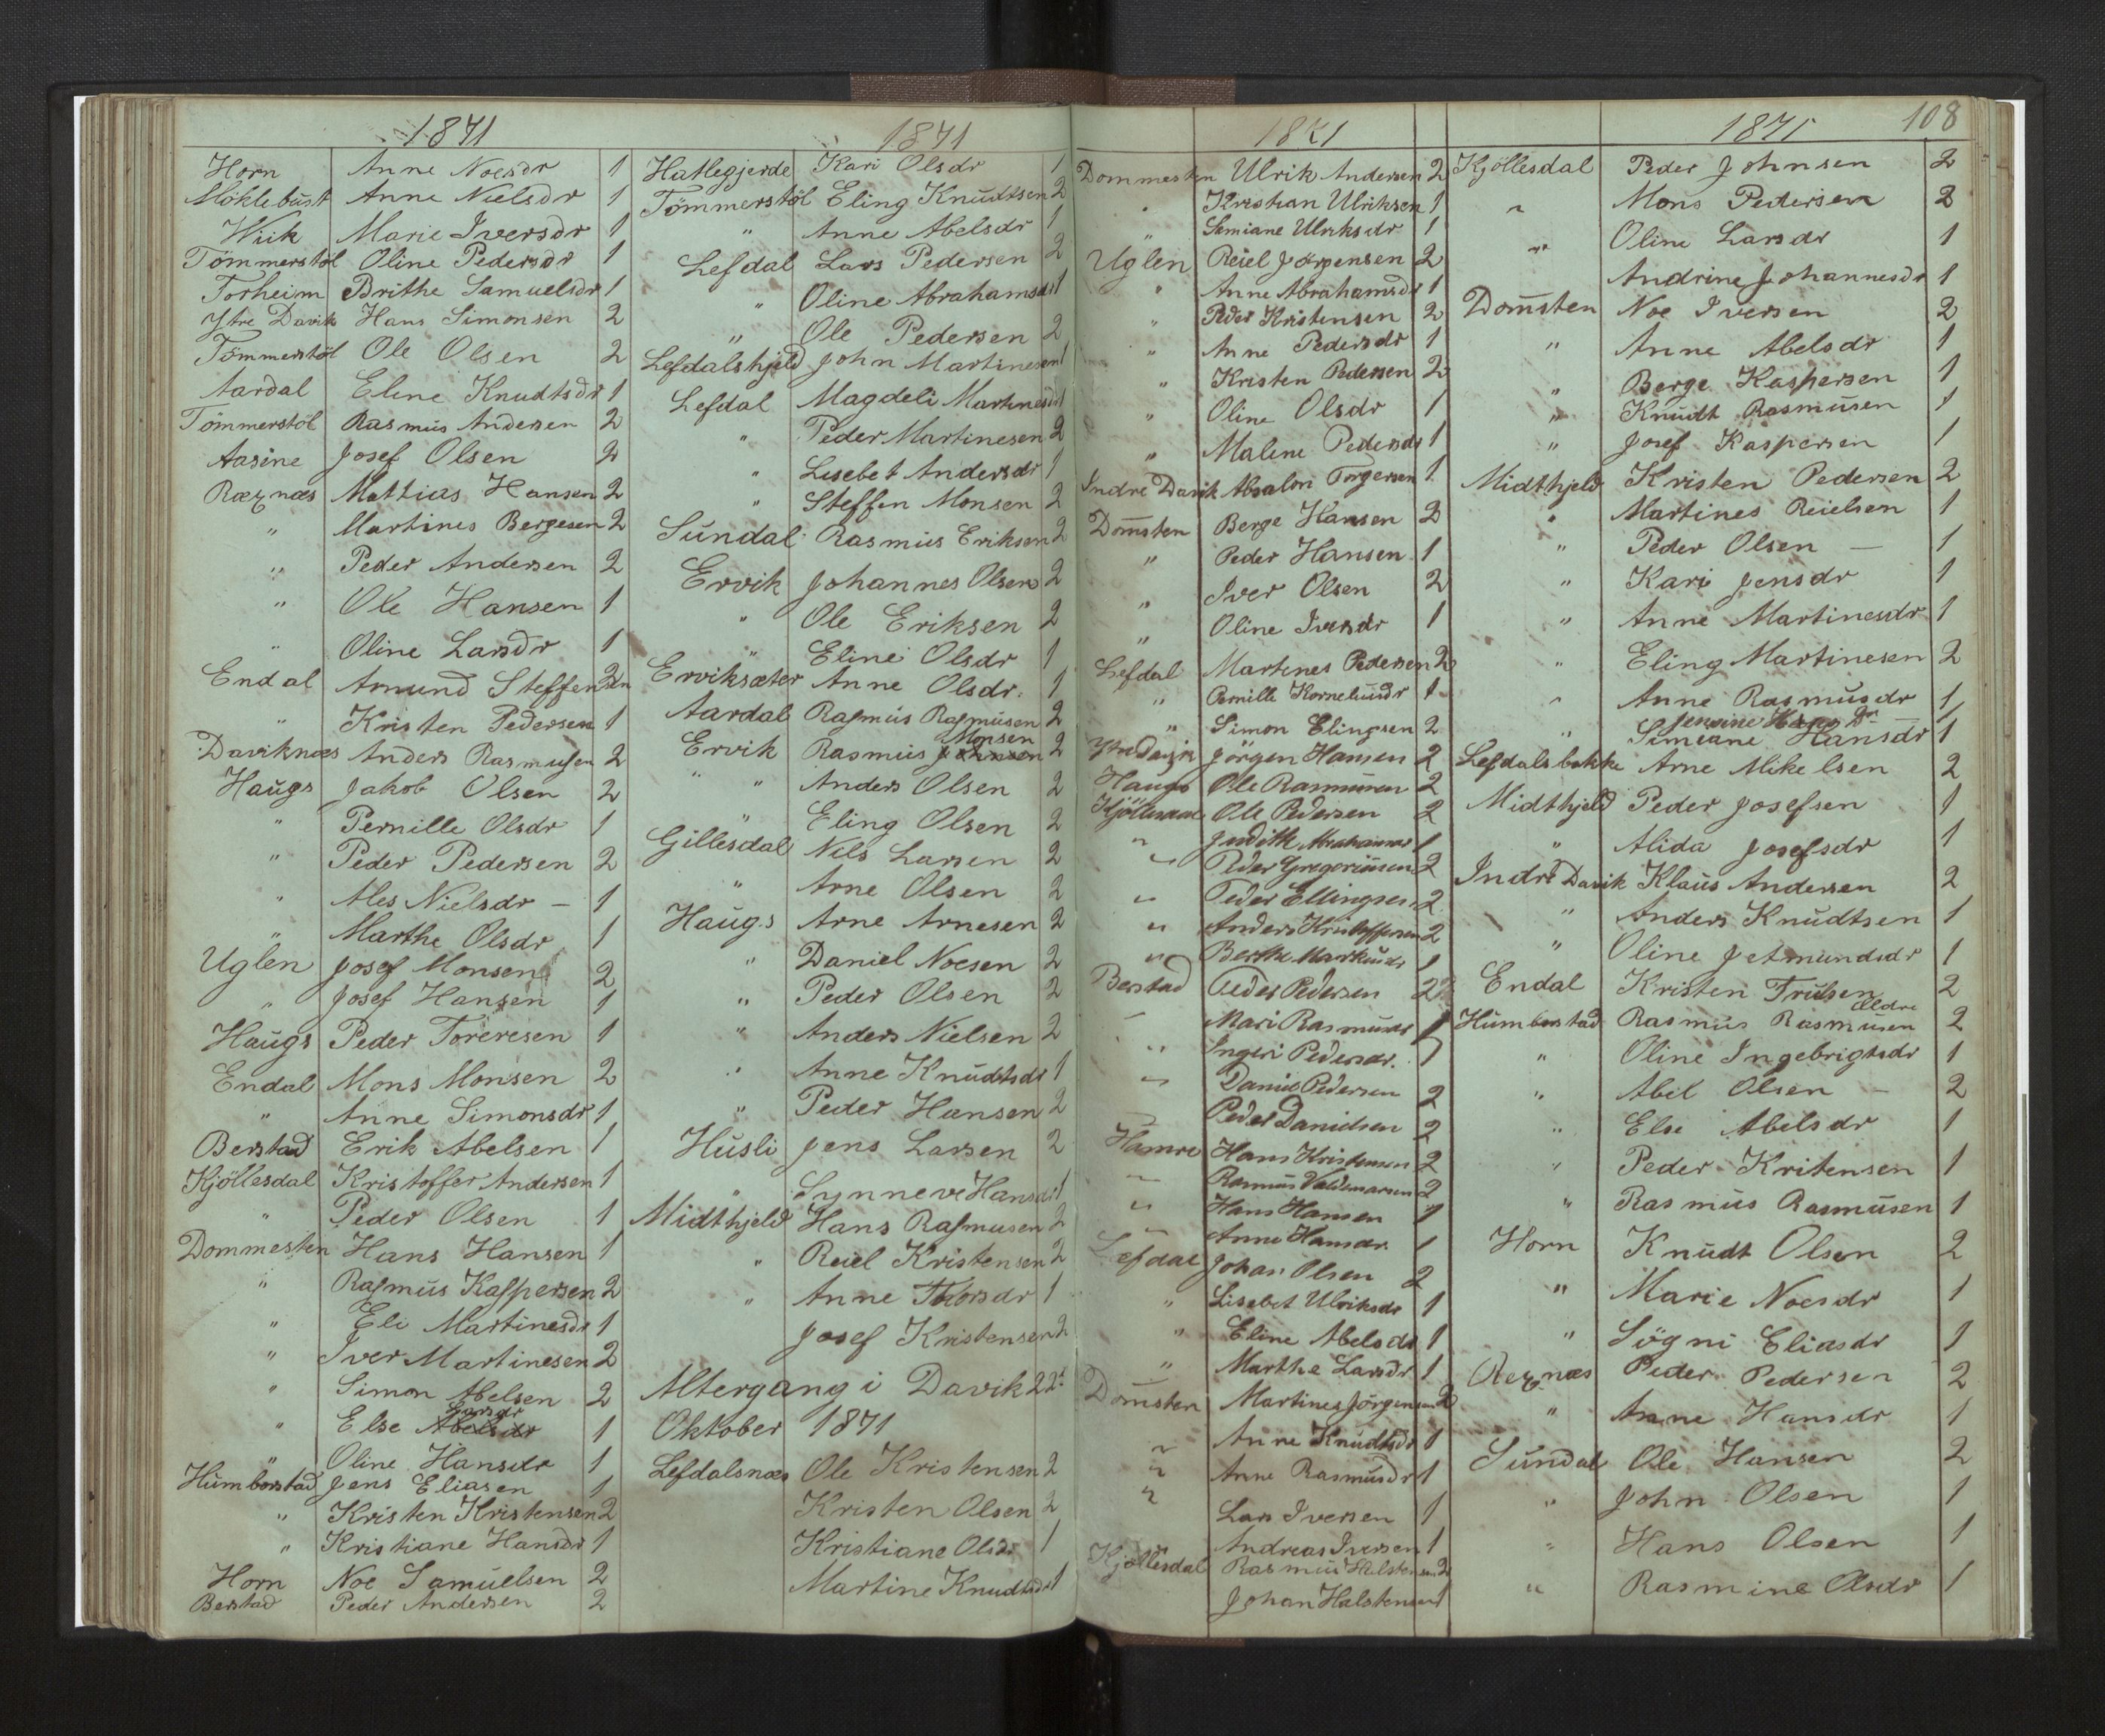 1871
Horn Anne Noesdr 1
Möklebust Anne Nielsdr 1
Wiik Marie Iversdr 1
Tömmerstöl Oline Pedersdr 1
Torheim Brithe Samuelsdr 1
Ytre Davik Hans Simonsen 2
Tömmerstöl Ole Olsen 2
Aardal Eline Knudtsdr 1
Tömmerstöl Rasmus Andersen 2
Aasine Josef Olsen 2
Rœznœs Mattias Hansen 2
" Martines Bergesen 2
" Peder Andersen 2
" Ole Hansen 1
" Oline Larsdr 1
Endal Amund Steffensen 2
" Kristen Pedersen 1
Daviknæs Anders Rasmusen 2
Haugs Jakob Olsen 2
" Pernille Olsdr 1
" Peder Pedersen 2
" Ales Nielsdr – 1
" Marthe Olsdr 1
Uglen Josef Monsen 2
" Josef Hansen 1
Haugs Peder Toreresen 1
Endal Mons Monsen 2
" Anne Simonsdr 1
Berstad Erik Abelsen 1
Kjöllesdal Kristoffer Andersen 1
" Peder Olsen 1
Dommesten Hans Hansen 1
" Rasmus Kaspersen 2
" Eli Martinesdr 1
" Iver Martinesen 2
" Simon Abelsen 2
" Else Larsdr 1
" Oline Hansdr 1
Humborstad Jens Eliasen 1
" Kristen Kristensen 2
" Kristiane Hansdr 1
Horn Noe Samuelsen 2
Berstad Peder Andersen 2
1871
Hatlegjerde Kari Olsdr 1
Tömmerstöl Eling Knudtsen 2
" Anne Abelsdr 1
Lefdal Lars Pedersen 2
" Oline Abrahamsdr 1
" Ole Pedersen 2
Lefdalshjeld John Martinesen 1
Lefdal Magdeli Martinesdr 1
" Peder Martinesen 2
" Lisebet Andersdr 1
" Steffen Monsen 2
Sundal Rasmus Eriksen 2
Ervik Johannes Olsen 2
" Ole Eriksen 2
" Eline Olsdr 1
Erviksæter Anne Olsdr. 1
Aardal Rasmus Rasmusen 2
Ervik Rasmus Monsen 2
" " Anders Olsen 2
" Eling Olsen 2
Gillesdal Nils Larsen 2
" Arne Olsen 2
Haugs Arne Arnesen 2
" Daniel Noesen 2
" Peder Olsen 2
" Anders Nielsen 2
" Anne Knudtsdr 1
" Peder Hansen 2
Husli Jens Larsen 2
" Synneve Hansdr 1
Midthjeld Hans Rasmusen 2
" Reiel Kristensen 2
" Anne Thorsdr 1
Josef Kristensen 2
Altergang i Davik 22d
Oktober 1871
Lefdalsnæs Ole Kristensen 2
Kristen Olsen 2
Kristiane Olsdr 1
Martine Knudtsdr 1
1871
Dommesten Ulrik Andersen 2
" Kristian Ulriksen 1
" Simiane Ulriksdr 1
Uglen Reiel Jörgensen 2
" Anne Abrahamsdr 1
" Peder Kristensen 2
" Anne Pedersdr 1
" Kristen Pedersen 2
" Oline Olsdr 1
" Malene Pedersdr 1
Indre Davik Absalon Torgersen 1
Dom̄sten Berge Hansen 2
" Peder Hansen 1
" Iver Olsen 2
" Oline Iversdr 1
Lefdal Martines Pedersen 2
" Pernille Korneliusdr 1
" Simon Elingsen 2
Ytre Davik Jörgen Hansen 2
Haugs Ole Rasmusen 2
Kjöllesdal Ole Pedersen 2
" Judith Abrahamsdr 1
" Peder Gregoriusen 2
" Peder Ellingsen 2
" Anders Kristoffersen 2
" Berthe Markusdr 1
Berstad Peder Pedersen 2
" Mari Rasmusdr 1
" Ingeri Pedersdr. 1
" Daniel Pedersen 2
" Peder Danielsen 2
Hamre Hans Kristensen 2
" Rasmus Valdemarsen 2
" Hans Hansen 1
" Anne Hansdr. 1
Lefdal Johan Olsen 2
" Lisebet Ulriksdr 1
" Eline Abelsdr 1
" Marthe Larsdr 1
Dom̄sten Martines Jörgensen 2
" Anne Knudtsdr 1
" Anne Rasmusdr 1
" Lars Iversen 1
Andreas Iversen 1
Kjöllesdal Rasmus Halstensen 2
Johan Halstensen 1
1871 108
Kjöllesdal Peder Johnsen 2
" Mons Pedersen 2
" Oline Larsdr 1
Andrine Johannesdr 1
Dom̄sten Noe Iversen 2
" Anne Abelsdr 1
" Berge Kaspersen 1
" Knudt Rasmusen 1
" Josef Kaspersen 1
Midthjeld Kristen Pedersen 2
" Martines Reielsen 1
" Peder Olsen – 1
" Kari Jensdr 1
" Anne Martinesdr 1
" Eling Martinesen 2
" Anne Rasmusdr 1
" Simeane Hansdr 1
Lefdalsbakke Arne Mikelsen 2
Midthjeld Peder Josefsen 1
" Alida Josefsdr 1
Indre Davik Klaus Andersen 2
" Anders Knudtsen 1
" Oline Jetmundsdr 1
Endal Kristen Trulsen 2
Humborstad Rasmus Rasmusen ældre 2
" Oline Ingebrigtsdr 1
" Abel Olsen – 2
" Else Abelsdr 1
" Peder Kritensen 1
" Rasmus Rasmusen 1
Horn Knudt Olsen 2
" Marie Noesdr 1
" Sögni Eliasdr 1
Rœznœs Peder Pedersen 2
" Anne Hansdr 1
Sundal Ole Hansen 2
" John Olsen 1
" Hans Olsen 1
" Rasmine Olsdr 1